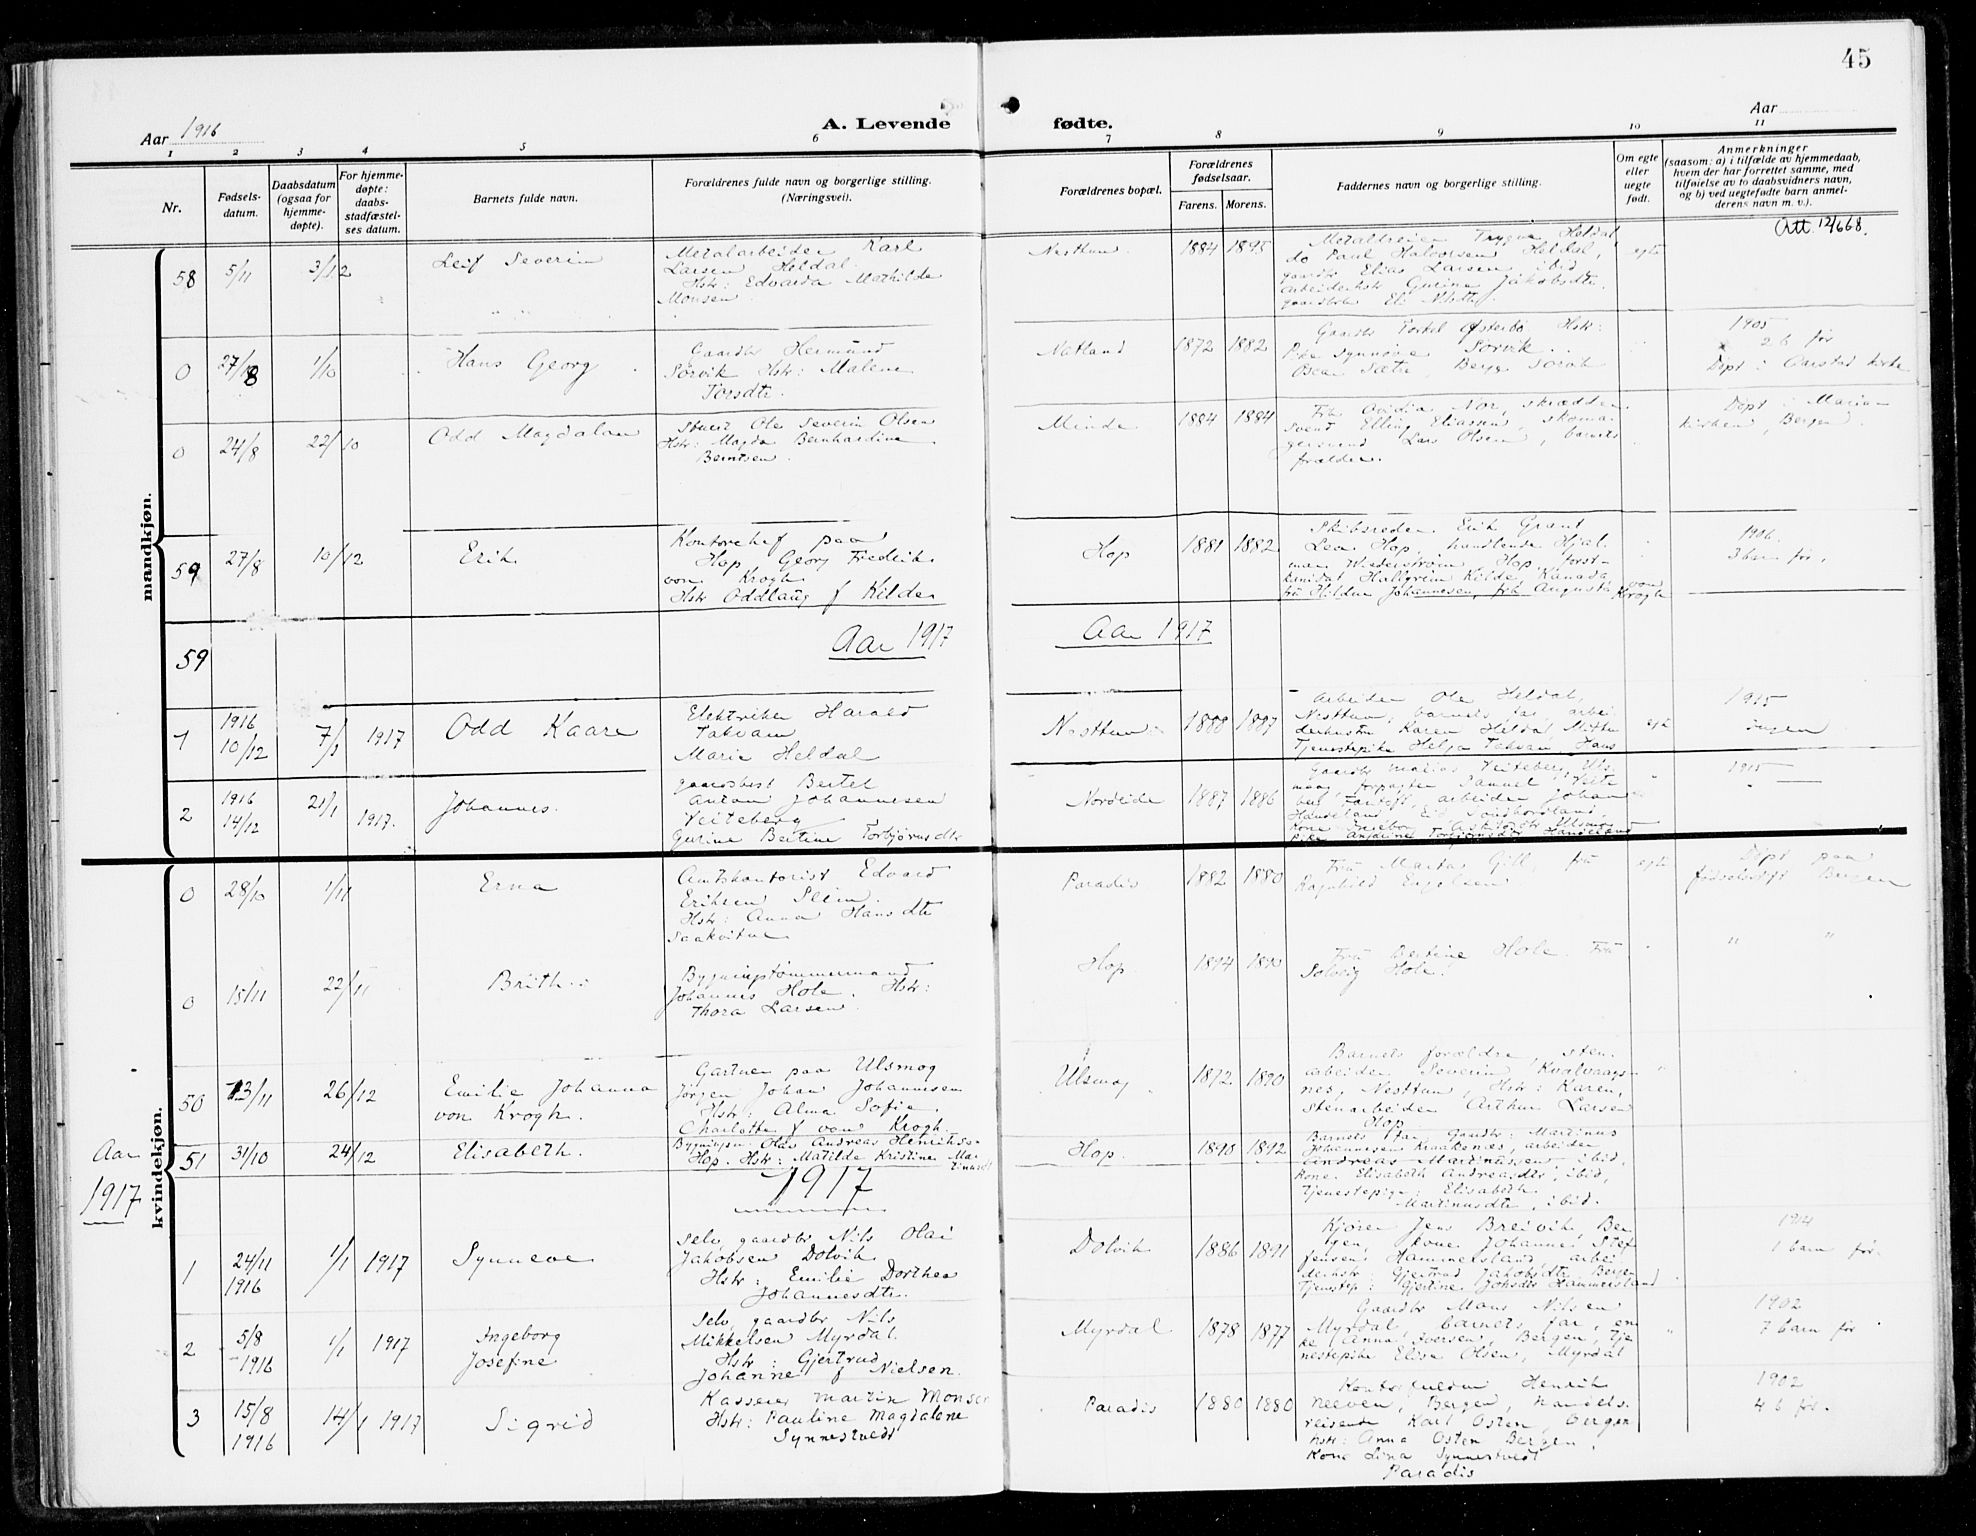 45
Aar 1916
A. Levende
fødte.
Aar
1 2 3 4 5 6 7 8 9 10 11
Nr.
Fødsels-
datum.
Daabsdatum
(ogsaa for
hjemme-
døpte).
For hjemme-
døpte:
daabs-
stadfæstel-
ses datum.
Barnets fulde navn.
Forældrenes fulde navn og borgerlige stilling.
(Næringsvei).
Forældrenes bopæl.
Forældrenes
fødselsaar.
Farens. Morens.
Faddernes navn og borgerlige stilling.
Om egte
eller
uegte
født.
Anmerkninger
(saasom: a) i tilfælde av hjemmedaab,
hvem der har forrettet samme, med
tilføielse av to daabsvidners navn,
og b) ved uegtefødte barn anmel-
derens navn m. v.).
Att 12/668.
mandkjøn.
58 5/11 3/12 Leif Severin
Metalarbeider Karl
Larsen Heldal.
Hstr: Edvarda Mathilde
Monsen
Nesttun 1884 1895
Trygve Heldal,
do Paul Halvorsen Heldal,
gaardbr Elias Larsen ibid,
arbeiderhstr Gurine Jakobsdtr.
egte
0 27/8 1/10 Hans Georg
Gaardbr Hermund
Sørvik Hstr: Malene
Torsdtr.
Natland 1872 1882
Gaardbr Torkel Østerbö Hstr:
Pike Synnöve Sörvik.
Oscar Sætre, Berge Sörvik
1905
26 før
Døpt i Aarstad kirke
0 24/8 22/10 Odd Magdalon
Stuert Ole Severin Olsen
Hstr: Magda Bernhardine
Berntsen.
Minde 1884 1884
Frk Ovidia Nor, skrædder
svend Elling Eliassen, skoma-
gersvend Lars Olsen, barnets
forældre.
Døpt i Maria-
kirken, Bergen.
59 27/8 10/12 Erik
Kontorchef paa
Hop Georg Fredrik
von Krogh
Hstr Oddlaug f Kilde
Hop 1881 1882
Skibsreder Erik Grant
Lea Hop, handlende Hjal-
mar Wiederström Hop, forst-
kandidat Hallgrim Kilde, Kanada
fru Hildur Johannesen, frk Augusta von
Krogh
1906
3 barn før.
59
Aar 1917
Aar 1917
1 1916
10/12 7/1 1917 Odd Kaare
Elektriker Harald
Takvam
Marie Heldal
Nesttun 1888 1887
Arbeider Ole Heldal,
Nesttun, barnets far, arbei-
derhustru Karen Heldal, Midttun
Tjenestepike Helga Takvam, Haus
egte
1915
Ingen
2 1916
14/12 21/1 1917. Johannes.
gaardbest Bertel
Anton Johannesen
Veiteberg
Gurine Bertine Torbjørnsdtr
Nordeide 1887 1886
Gaardbr Matias Veiteberg, Uls-
mag, forpagter Samuel Veite
berg Fantoft, arbeider Johan
Handeland Ed Søndhordland
1915
kvindekjøn.
0 28/10 1/11 Erna
Amtskontorist Edvard
Eriksen Slein.
Hstr: Anna Hansdtr
Saakvitne
Paradis 1882 1880
Fru Marta Gill, fru
Ragnhild Engelsen
egte
Döpt paa
fødselsstift Bergen
0 15/11 22/11 Brith
Bygningstømmermand
Johannes Hole. Hstr:
Thora Larsen
Hop. 1894 1890
Fru Bertine Hole. Fru
Solveig Hole.
" "
50 13/11 26/12 Emilie Johanna
von Krogh.
Gartner paa Ulsmog
Jørgen Johan Johannesen
Hstr: Alma Sofie.
Charlotte f von Krogh.
Ulsmog 1892 1890
Barnets forældre, sten-
arbeider Severin Kvalvaags-
nes, Nesttun, Hstr: Karen,
stenarbeider Arthur Larsen
Hop
51 31/10 24/12 Elisabeth.
Bygningsn. Olai Andreas Henriks-
Hop. Hstr: Matilde Kristine Mar-
tinusdt
Hop. 1890 1892
Barnets far, Gaardbr: Martinus
Johannesen Kraakenes, arbeider
Andreas Martinussen ibid,
kone Elisabeth Andreasdtr, ibid,
tjenestepige: Elisabeth.
Martinusdtr, ibid.
Aar
1917
1917
1 24/11
1916 1/1 1917 Synneve
Selv. gaardbr Nils Olai
Jakobsen Dolvik
Hstr: Emilie Dorthea
Johannesdtr.
Dolvik 1886 1891
Kjører Jens Breivik Ber-
gen, kone Johanne Stef
fensen Hammersland arbei-
derhstr: Gjertrud Jakobsdtr Bergen
Tjenstep: Gjertine Johsdtr Hammersland
1914
1 barn før.
2 5/8
1916 1/1 1917 Ingeborg
Josefine
Selv. gaardbr Nils
Mikkelsen Myrdal.
Hstr: Gjertrud
Johanne f Nielsen.
Myrdal 1878 1877
Gaardbr Mons Nilsen
Myrdal, barnets far, en-
ke Anna Iversen, Bergen, Tje
nestepike Elise Olsen, Myrdal
"
1902
7 barn før
3 15/8
1916 14/1 1917 Sigrid
Kasserer Martin Monsen
Hstr: Pauline Magdalene
Synnestvedt
Paradis 1880 1880
Kontorfuldm Henrik
Neeven, Bergen, handels-
reisende Karl Osten, Bergen
hstr: Anna Osten Bergen,
Kone Lina Synnestvedt
Paradis
1902
4 b før.